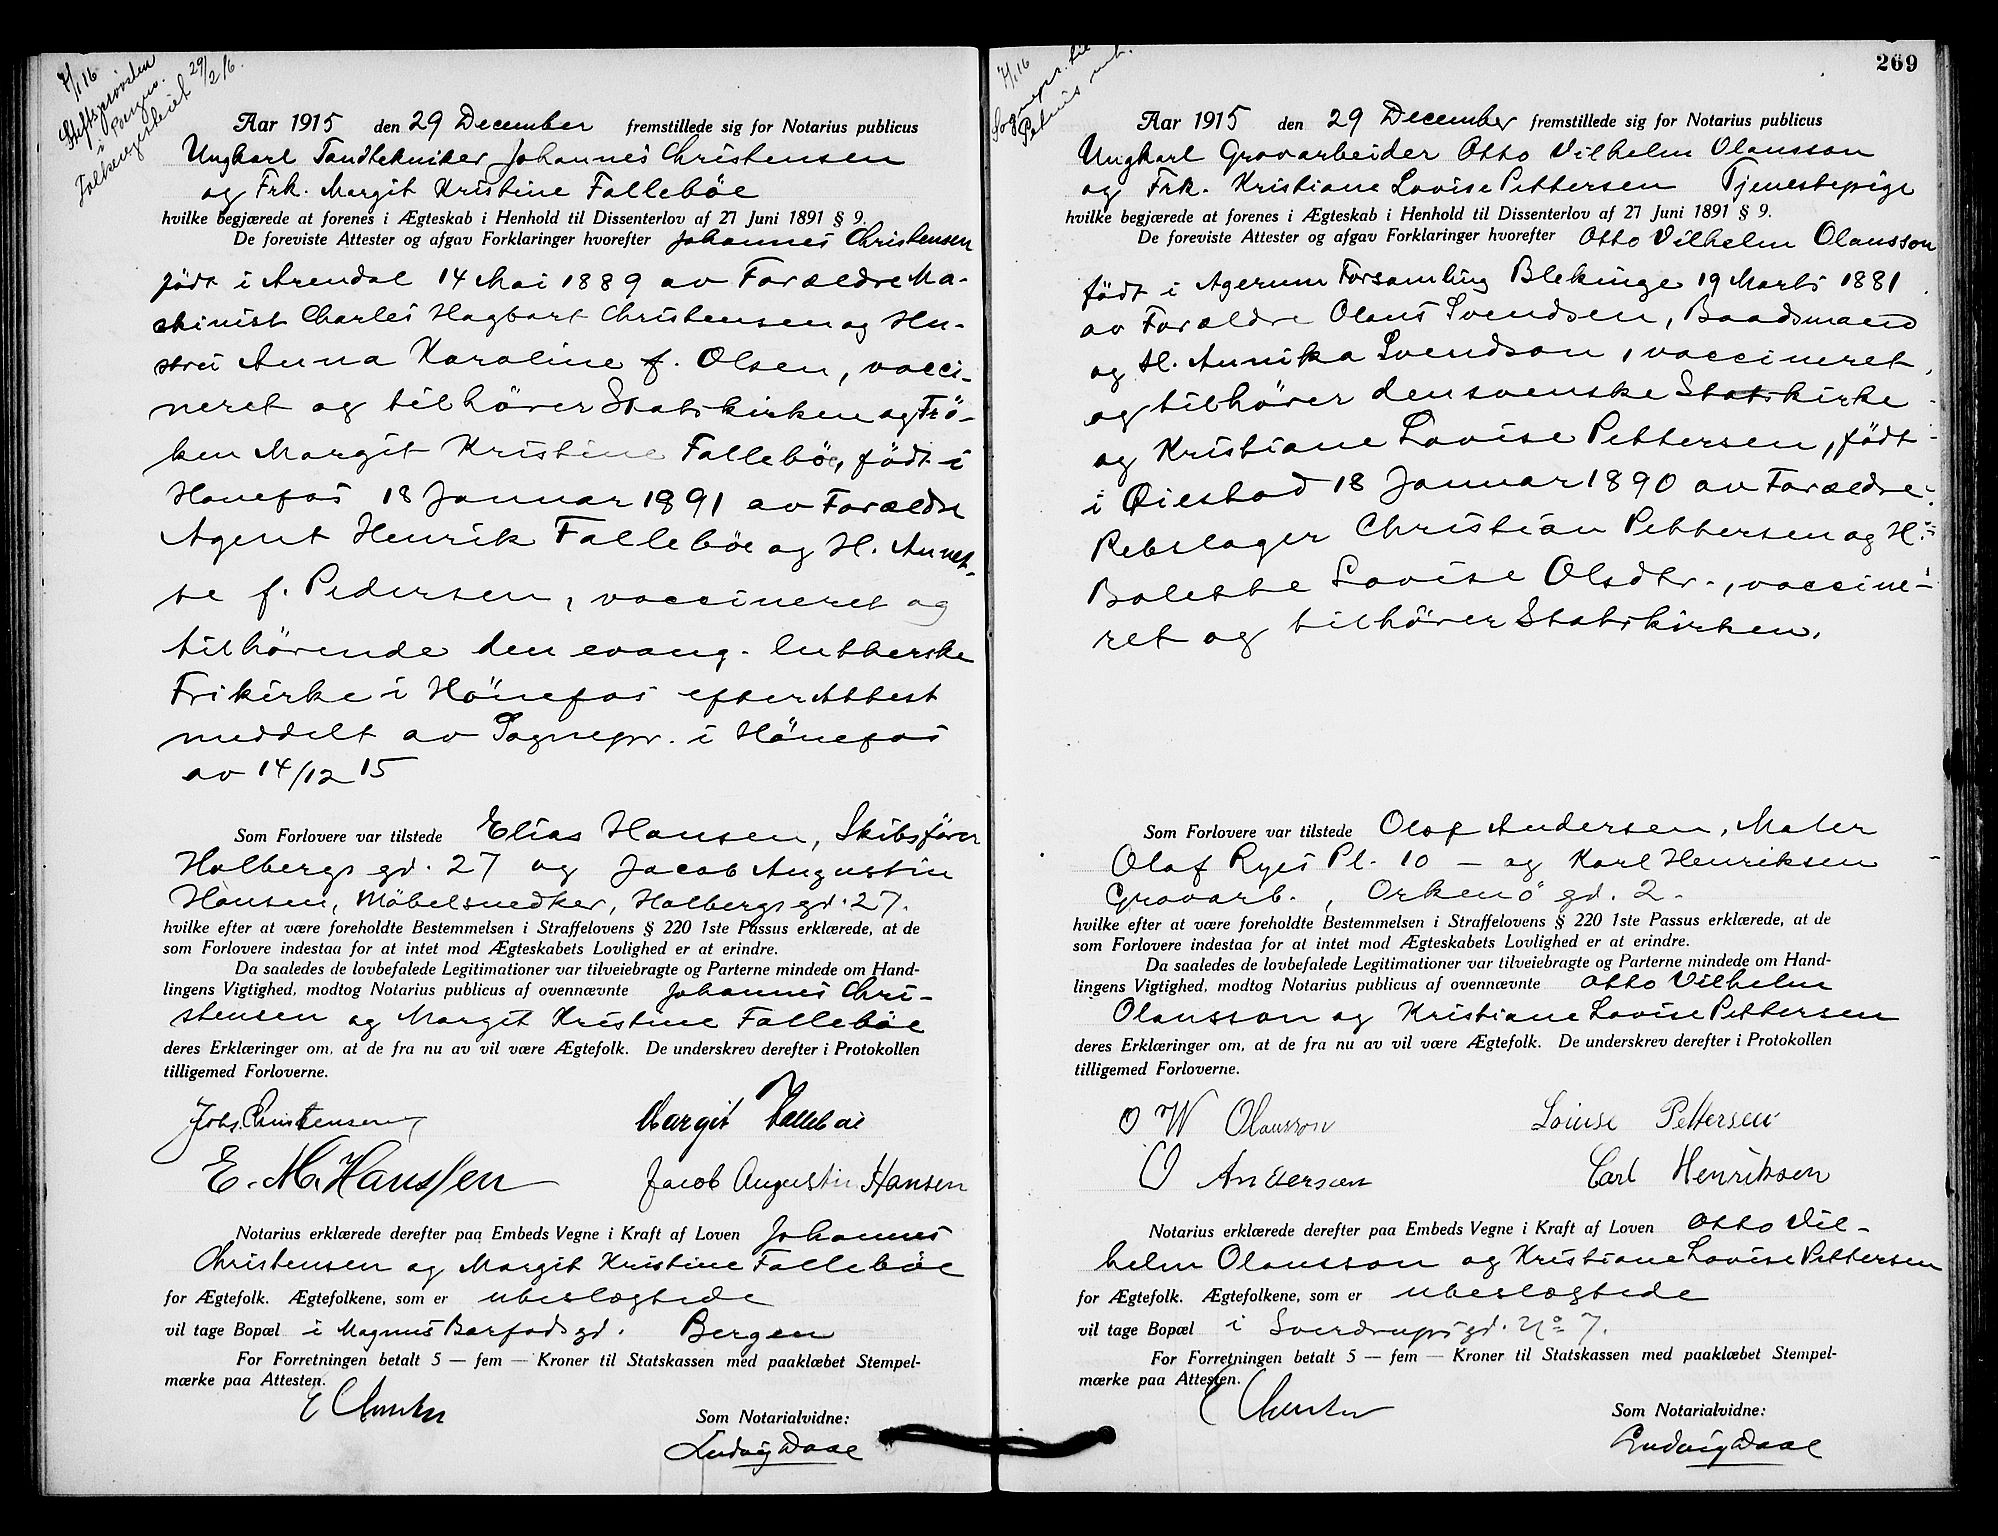 7/1 16
Stiftsprovsten
i Bergen.
Folkeregisteriet 29/2 16.
Aar 1915 den 29 December fremstillede sig for Notarius publicus
Ungkarl Tandtekniker Johannes Christensen
og Frk. Margit Kristine Falleböe
hvilke begjærede at forenes i Ægteskab i Henhold til Dissenterlov af 27 Juni 1891 § 9.
De foreviste Attester og afgav Forklaringer hvorefter Johannes Christensen
født i Arendal 14 Mai 1889 av Forældre Ma-
skinist Charles Hagbart Christensen og Hu-
stru Anna Karoline f. Olsen, vacci-
neret og tilhörer Statskirken og Frö-
ken Margit Kristine Falleböe, født i
Hönefos 18 Januar 1891 av Forældre
Agent Henrik Falleböe og H. Annet-
te f. Pedersen, vaccineret og
tilhörende den evang. lutherske
Frikirke i Hönefos efter Attest
meddelt av Sognepr. i Hönefos
av 14/12 15
Som Forlovere var tilstede Elias Hansen, Skibsfører
Holbergs gd. 27 og Jacob Augustin
Hansen, Möbelsnedker, Holbergs gd. 27.
hvilke efter at være foreholdte Bestemmelsen i Straffelovens § 220 1ste Passus erklærede, at de
som Forlovere indestaa for at intet mod Ægteskabets Lovlighed er at erindre.
Da saaledes de lovbefalede Legitimationer var tilveiebragte og Parterne mindede om Hand-
lingens Vigtighed, modtog Notarius publicus af ovennævnte Johannes Chri-
stensen og Margit Kristine Falleböe
deres Erklæringer om, at de fra nu av vil være Ægtefolk. De underskrev derefter i Protokollen
tilligemed Forloverne.
Johs. Christensen, Margit Falleböe
E. M. Hanssen Jacob Augustin Hansen
Notarius erklærede derefter paa Embeds Vegne i Kraft af Loven Johannes
Christensen og Margit Kristine Falleböe
for Ægtefolk. Ægtefolkene, som er ubeslægtede
vil tage Bopæl i Magnus Barfods gd. Bergen
For Forretningen betalt 5 — fem — Kroner til Statskassen med paaklæbet Stempel-
mærke paa Attesten.
Som Notarialvidne:
Ludvig Daae
269
7/1 16
Sognepr. til
Petrus mt.
Aar 1915 den 29 December fremstillede sig for Notarius publicus
Ungkarl Gravarbeider Otto Vilhelm Olausson
og Frk. Kristiane Lovise Pettersen Tjenestepige
hvilke begjærede at forenes i Ægteskab i Henhold til Dissenterlov af 27 Juni 1891 § 9.
De foreviste Attester og afgav Forklaringer hvorefter Otto Vilhelm Olausson
født i Agerum Forsamling Blekinge 19 Marts 1881
av Forældre Olaus Svendsen, Baadsmand
og H. Annika Svendson, vaccineret
og tilhörer den svenske Statskirke
og Kristiane Lovise Pettersen, født
i Øiestad 18 Januar 1890 av Forældre
Rebslager Christian Pettersen og H.
Bolette Lovise Olsdtr., vaccine-
ret og tilhörer Statskirken.
Som Forlovere var tilstede Olof Andersen, Maler
Olaf Ryes Pl. 10 — og Karl Henriksen
Gravarb., Orkenö gd. 2.
hvilke efter at være foreholdte Bestemmelsen i Straffelovens § 220 1ste Passus erklærede, at de
som Forlovere indestaa for at intet mod Ægteskabets Lovlighed er at erindre.
Da saaledes de lovbefalede Legitimationer var tilveiebragte og Parterne mindede om Hand-
lingens Vigtighed, modtog Notarius publicus af ovennævnte Otto Vilhelm
Olausson og Kristiane Lovise Pettersen
deres Erklæringer om, at de fra nu av vil være Ægtefolk. De underskrev derefter i Protokollen
tilligemed Forloverne.
O W Olausson Louise Pettersen
O Andersen Carl Henrikson
Notarius erklærede derefter paa Embeds Vegne i Kraft af Loven Otto Vil-
helm Olausson og Kristiane Lovise Pettersen
for Ægtefolk. Ægtefolkene, som er ubeslægtede
vil tage Bopæl i Sverdrups gd. No 7.
For Forretningen betalt 5 — fem — Kroner til Statskassen med paaklæbet Stempel-
mærke paa Attesten.
Som Notarialvidne:
Ludvig Daae